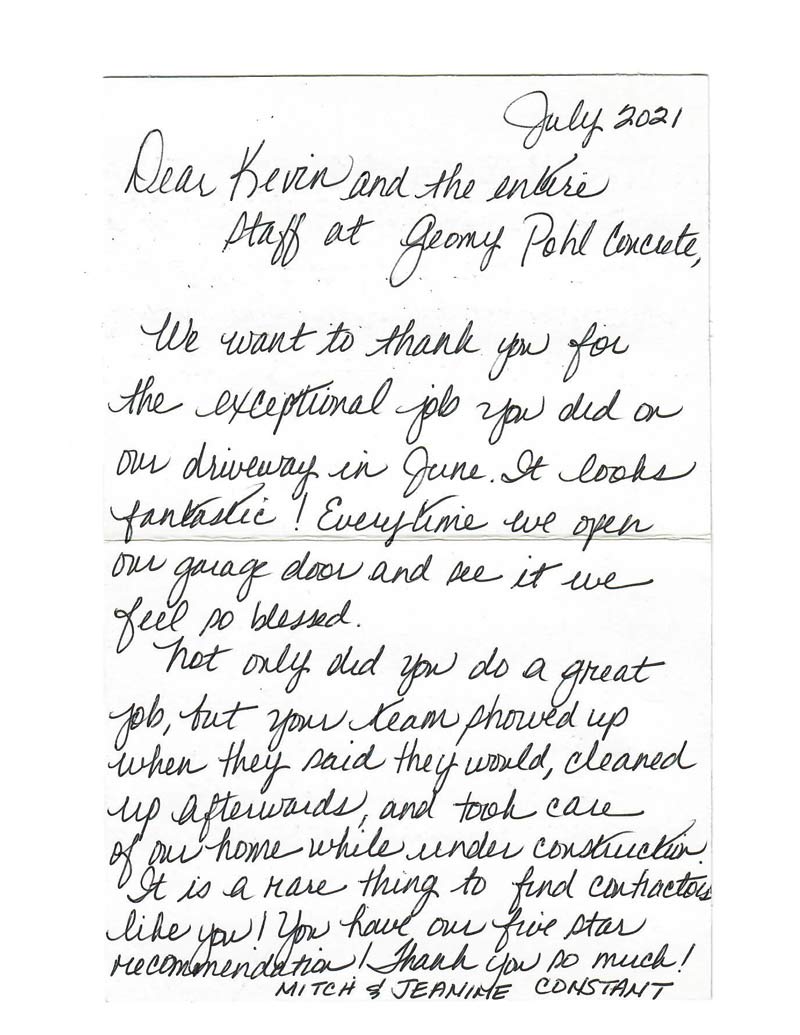 July 2021
Dear Kevin and the entire
staff at Geomy Pohl Concrete,
We want to thank you for
the exceptional job you did on
our driveway in June. It looks
fantastic! Everytime we open
our garage door and see it we
feel so blessed.
Not only did you do a great
job, but your team showed up
when they said they would, cleaned
up afterwards, and took care
of our home while under construction.
It is a rare thing to find contractors
like you! You have our five star
recommendation! Thank you so much!
MITCH & JEANINE CONSTANT